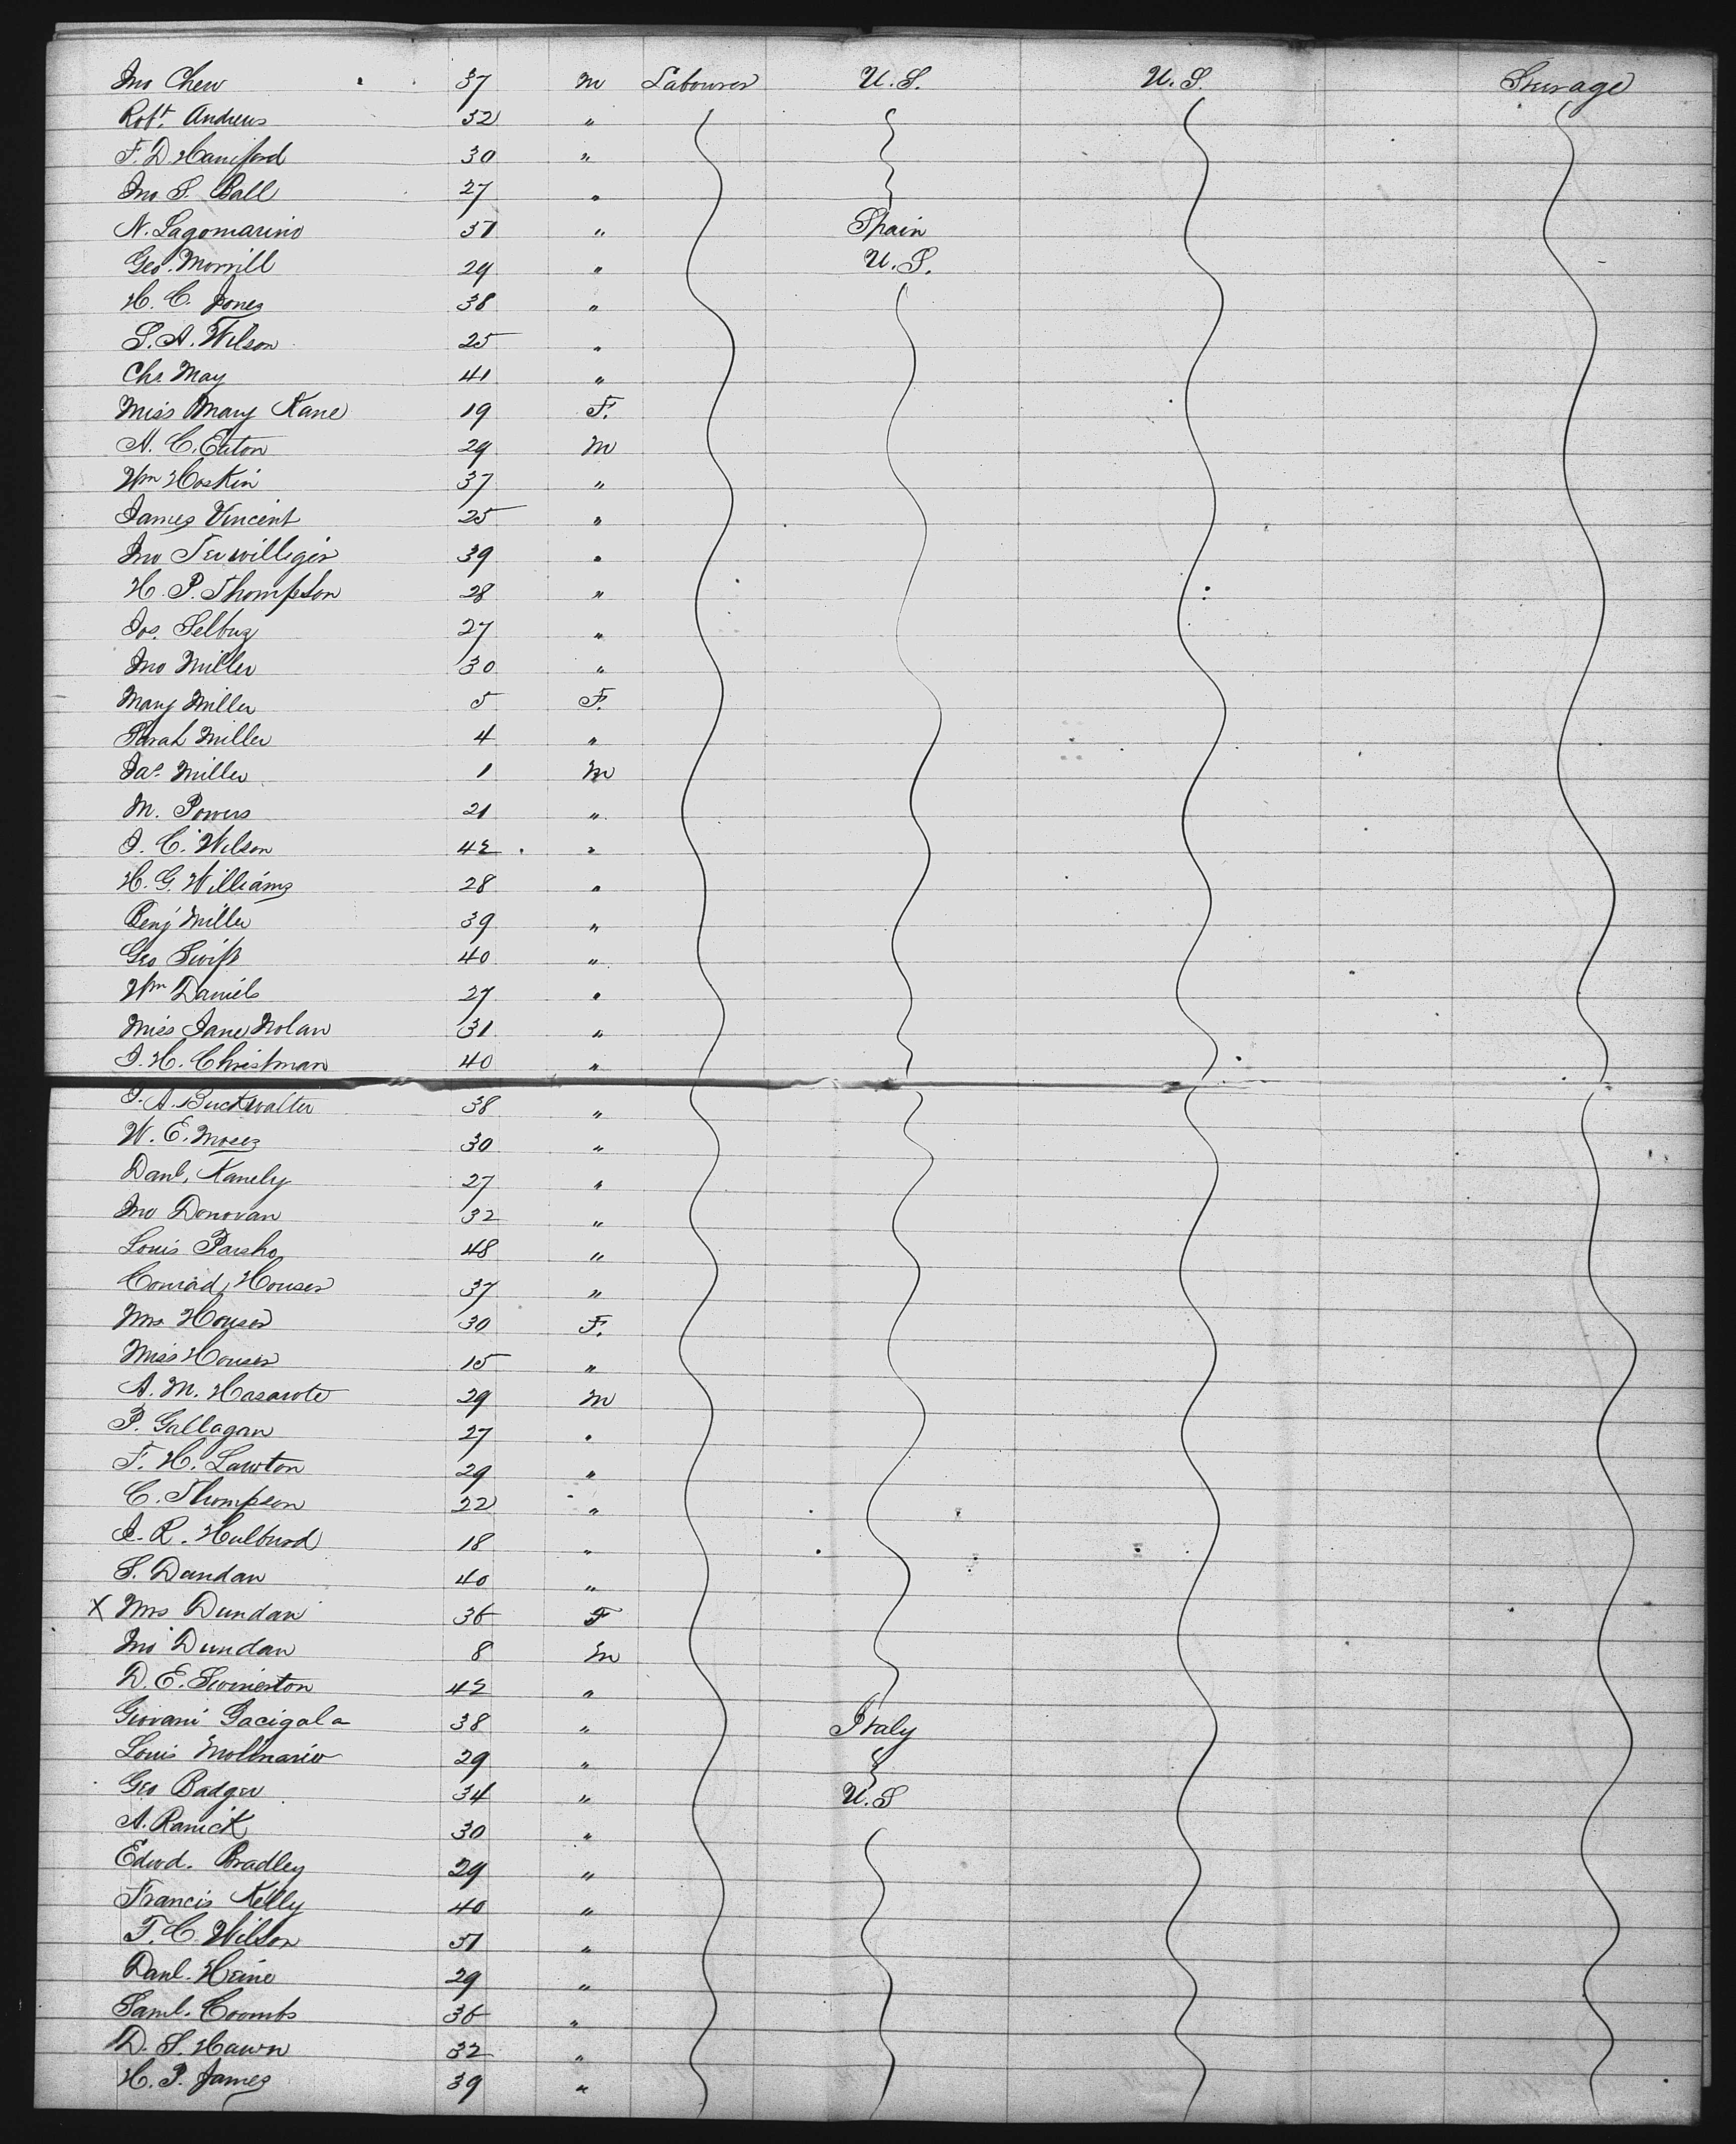 Jno Chew 37 m Labourer U.S. U.S. Steerage
Robt. Andrews 32 "
F. D. Haniford 30 "
Jno S. Ball 27 "
N. Lagomarino 37 " Spain
Geo. Morrill 29 " U.S.
H. C. Jones 38 "
S. A. Wilson 25 "
Chs. May 41 "
Miss Mary Kane 19 F.
N. C. Eaton 29 m
Wm Hoskin 37 "
James Vincent 25 "
Jno Terwilliger 39 "
H. P. Thompson 28 "
Jos. 27 "
Jno Miller 30 "
Mary Miller 5 F.
Sarah Miller 4 "
Jas. Miller 1 m
M. Powers 21 "
J. C. Wilson 42 "
H. G. Williams 28 "
Benj Miller 39 "
Geo Swift 40 "
Wm Daniels 27 "
Miss Jane Nolan 31 "
J. H. Christman 40 "
J. A. Buckwalter 38 "
W. E. Moses 30 "
Danl. Kanely 27 "
Jno Donovan 32 "
Louis Parsho 48 "
Conrad Houser 37 "
Mrs Houser 30 F.
Miss Houser 15 "
A. M. 29 m
P. Gallagan 27 "
F. H. Lawton 29 "
C. Thompson 22 "
J. R. Hulburd 18 "
S. Dundan 40 "
X Mrs Dundan 36 F
Jno Dundan 8 m
D. E. Swinerton 42 "
Giovani Gacigala 38 " Italy
Louis Molinario 29 "
Geo Badger 34 " U.S
A. Ranick 30 "
Edwd. Bradley 29 "
Francis Kelly 40 "
F. C. Wilson 31 "
Danl. Heine 29 "
Saml. Coombs 36 "
D. S. Hawn 32 "
H. P. James 39 "